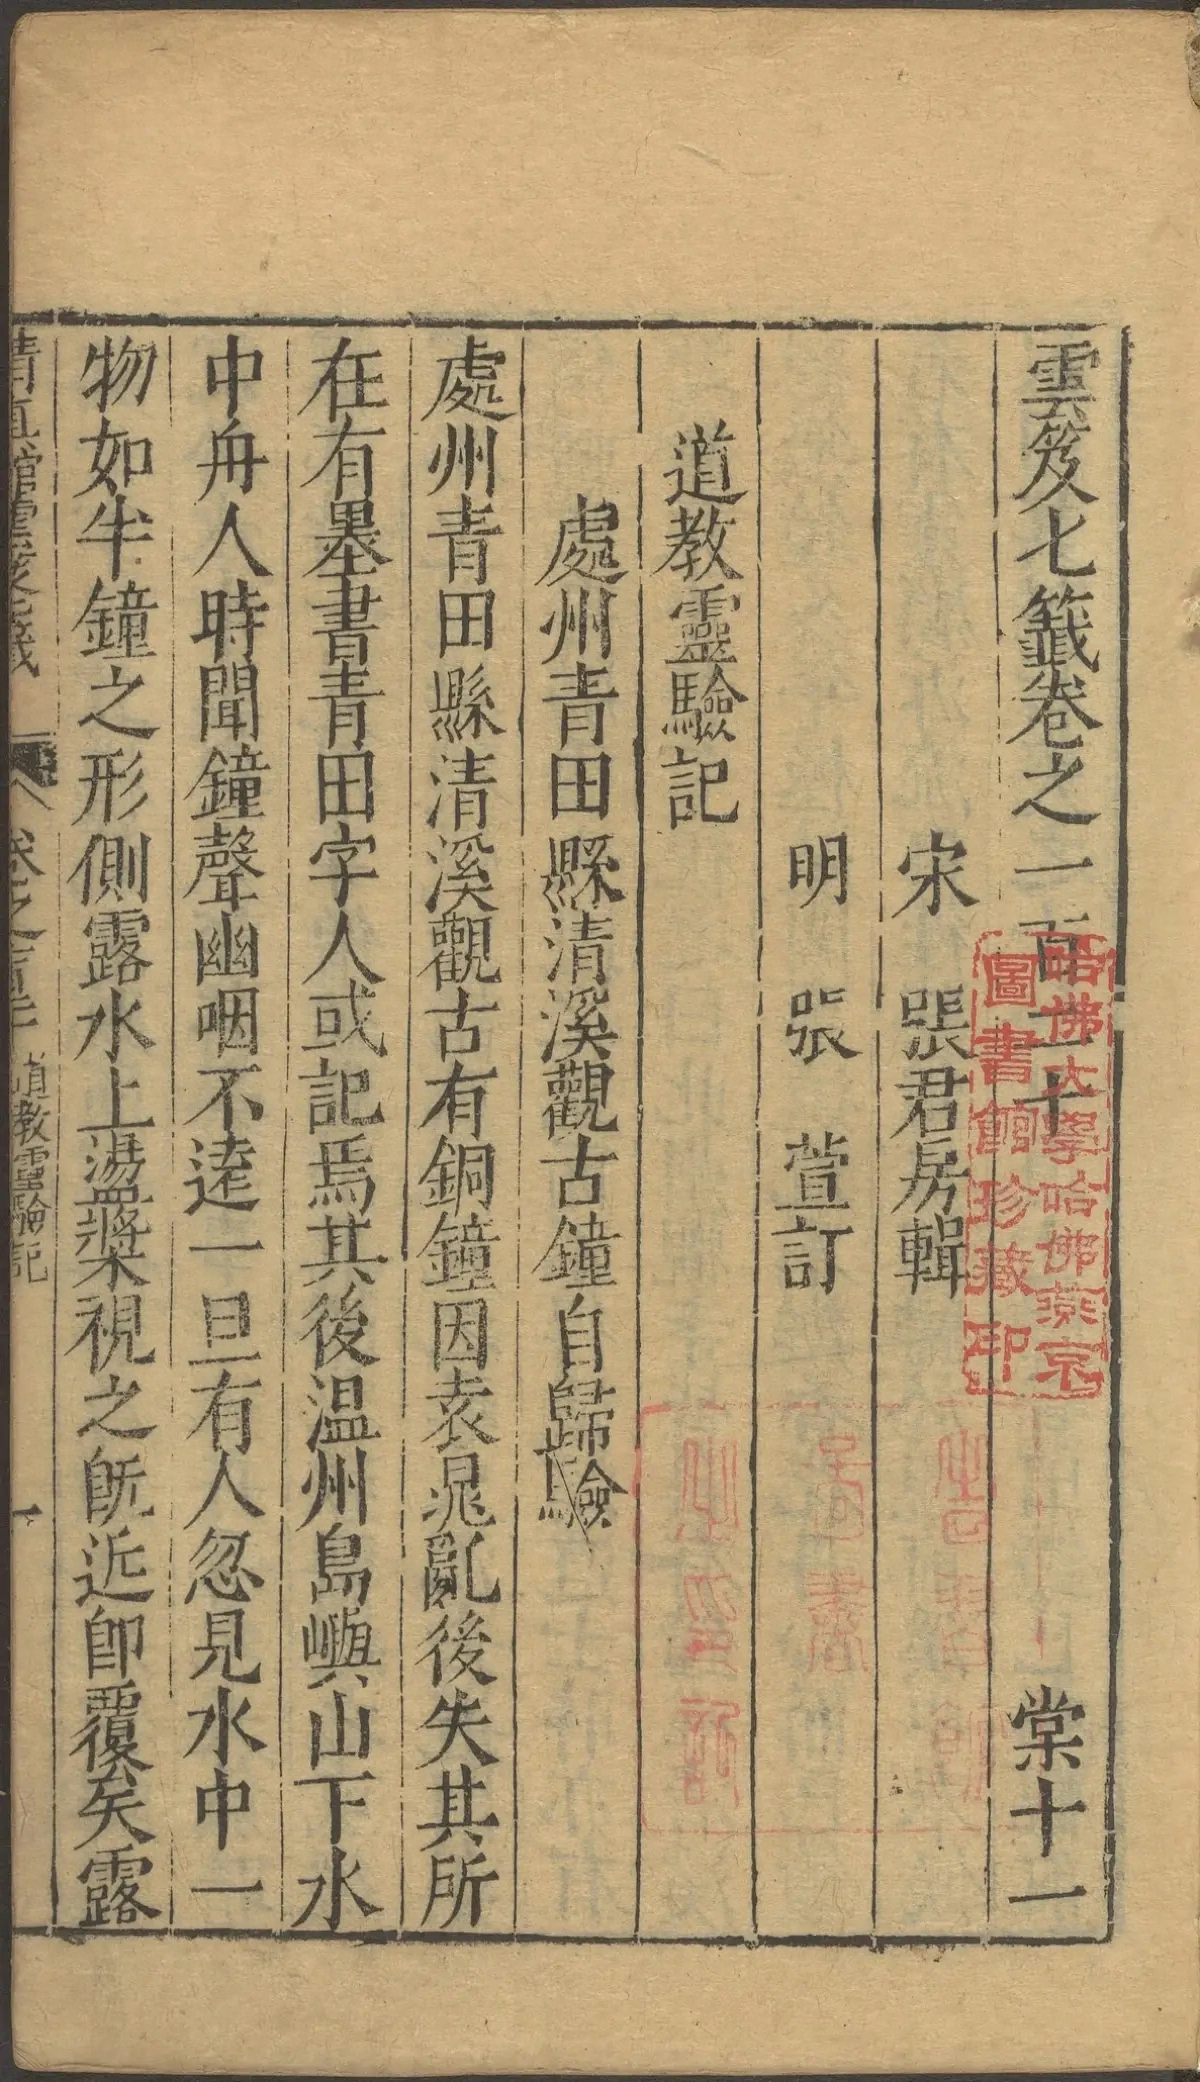 雲笈七籤卷之一百二十 棠十一
宋 張君房輯
明 張 萱訂
道教靈驗記
處州青田縣清溪觀古鐘自歸驗
處州青田縣清溪觀古有銅鐘因袁晁亂後失其所
在有墨書青田字人或記焉其後温州島嶼山下水
中舟人時聞鐘聲幽咽不逺一旦有人忽見水中一
物如牛鐘之形側露水上盪槳視之旣近卽覆矣露
清真館雲笈七籤 卷之 道教靈驗記 一
哈佛大學哈佛燕京
圖書館珍藏印